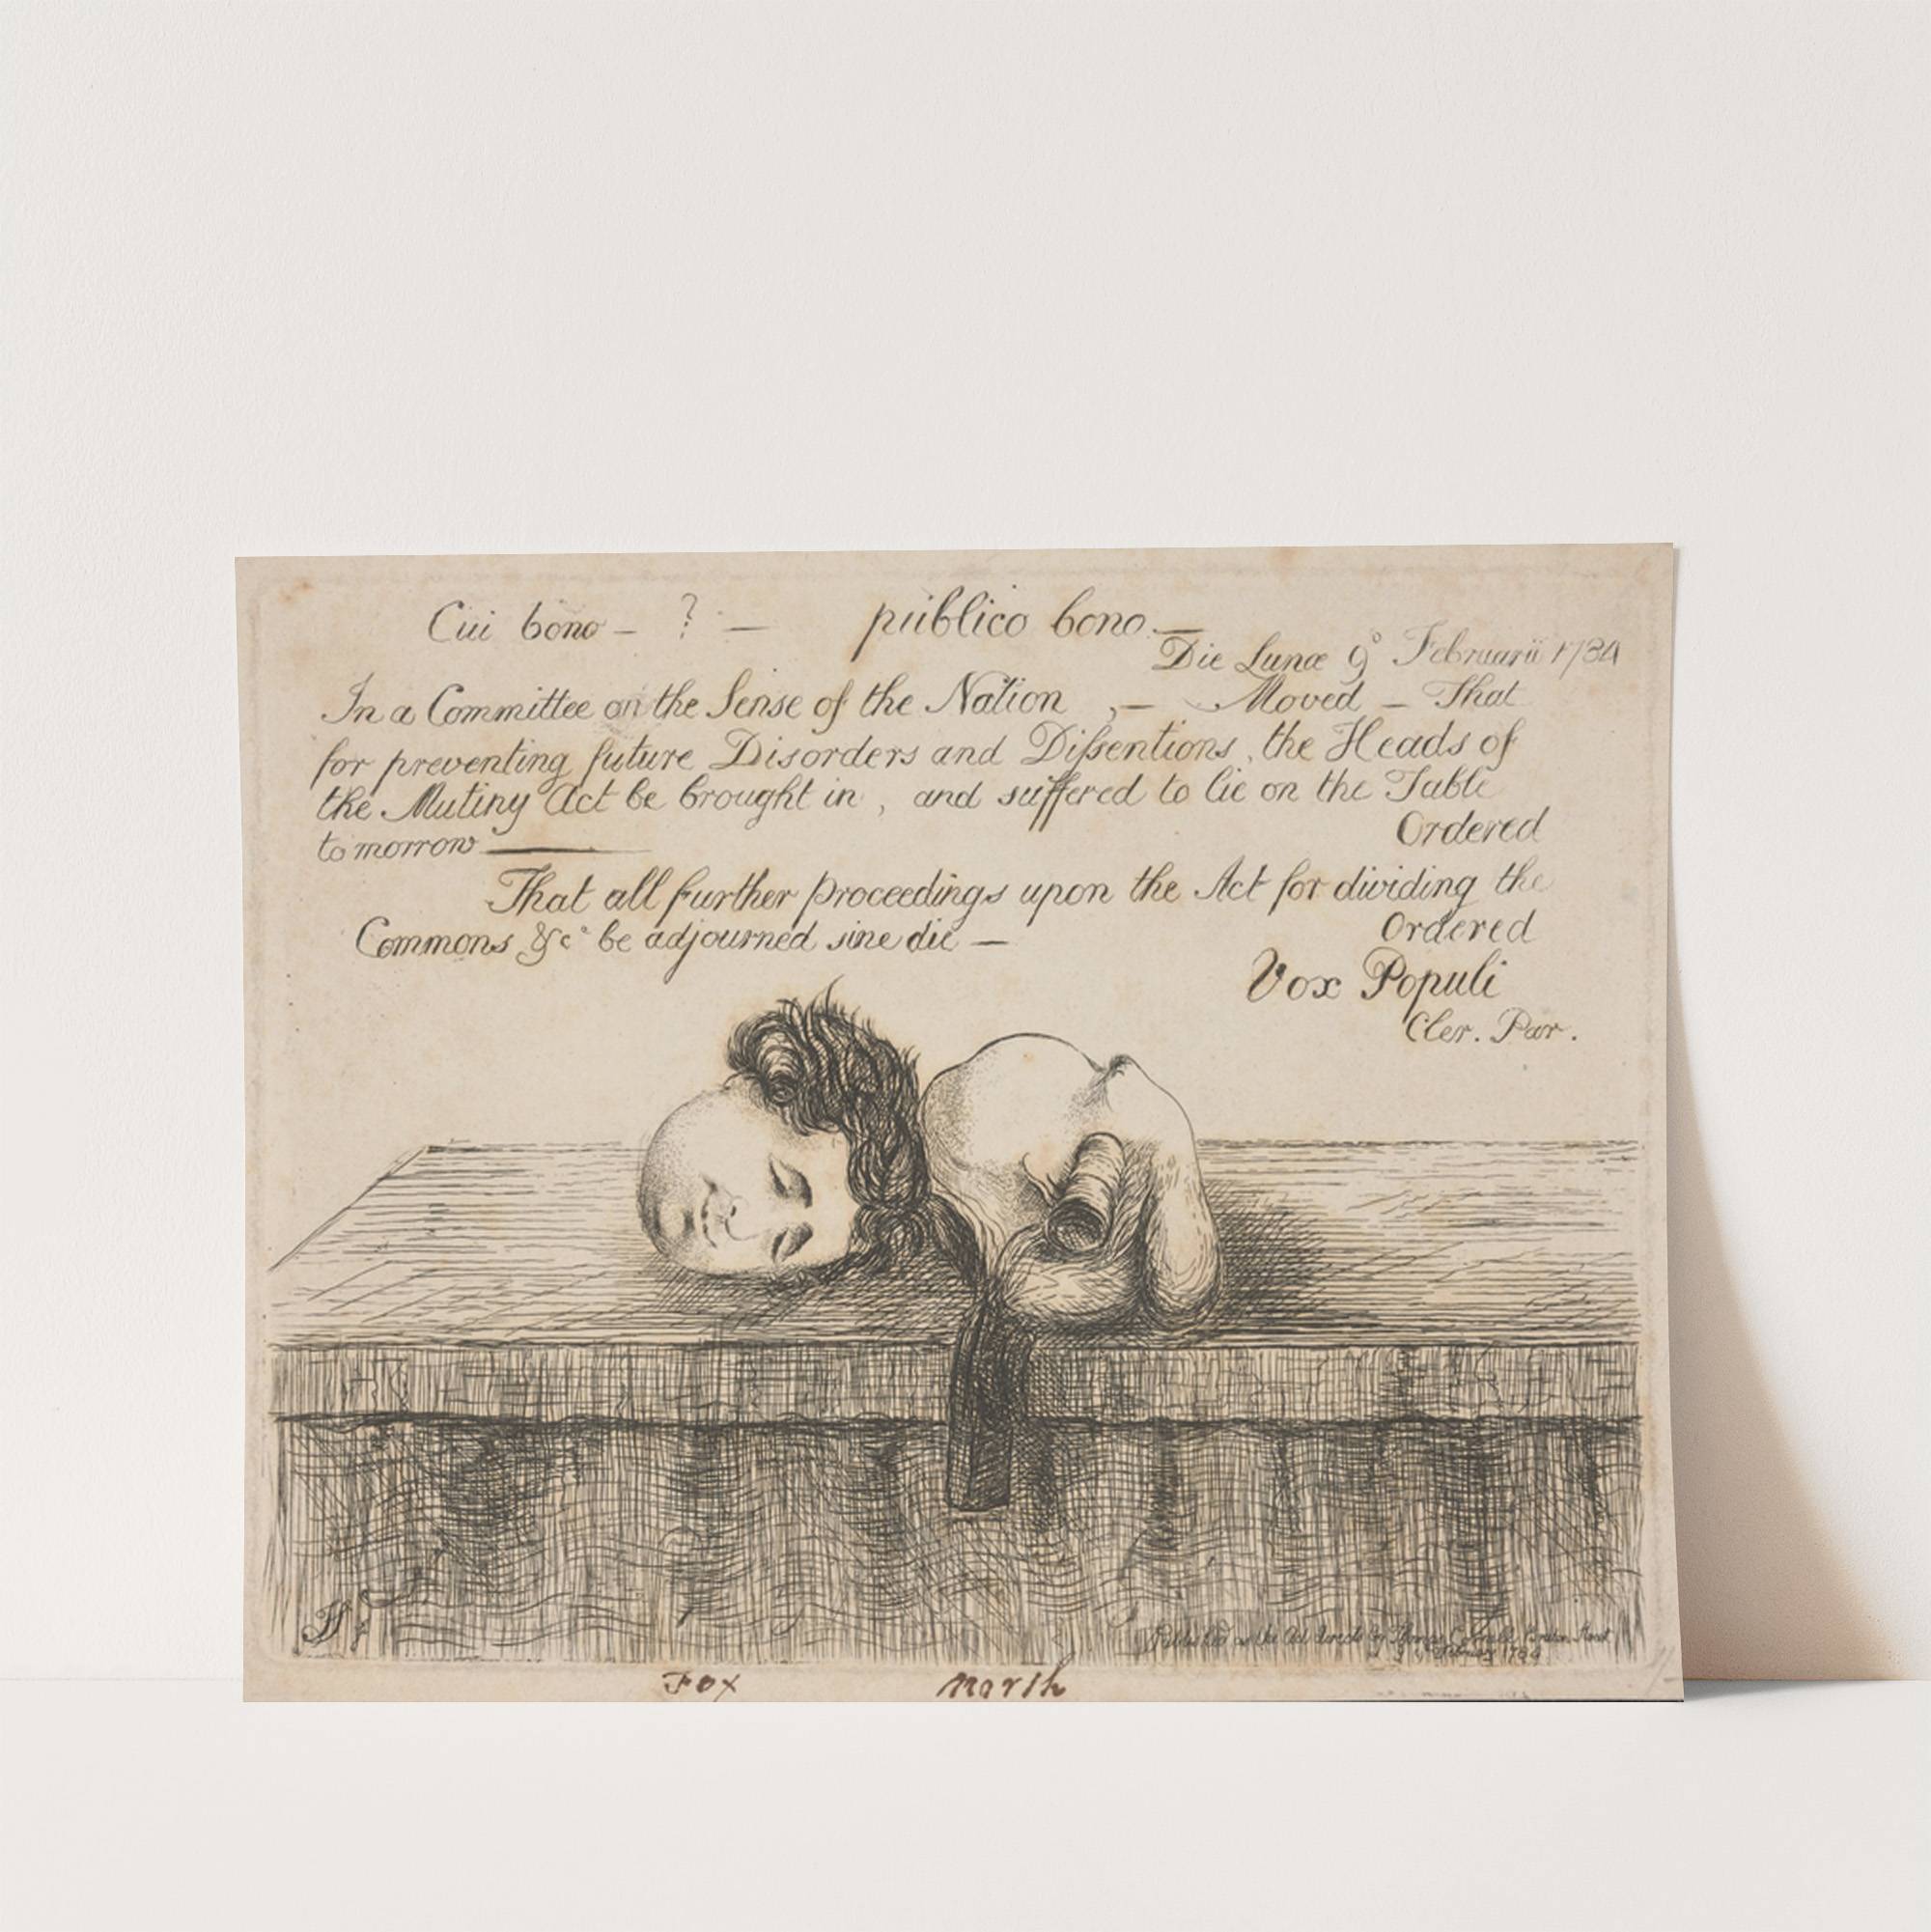 Cui bono – ? — publico bono. —
Die Lunæ 9° Februarii 1784
In a Committee on the Sense of the Nation , — Moved – That
for preventing future Disorders and Dissentions, the Heads of
the Mutiny Act be brought in , and suffered to lie on the Table
to morrow —
Ordered
That all further Proceedings upon the Act for dividing the
Commons &c° be adjourned sine die —
Ordered
Vox Populi
Cler. Par.
Published as the Act directs by Thomas
February 1784
Fox North